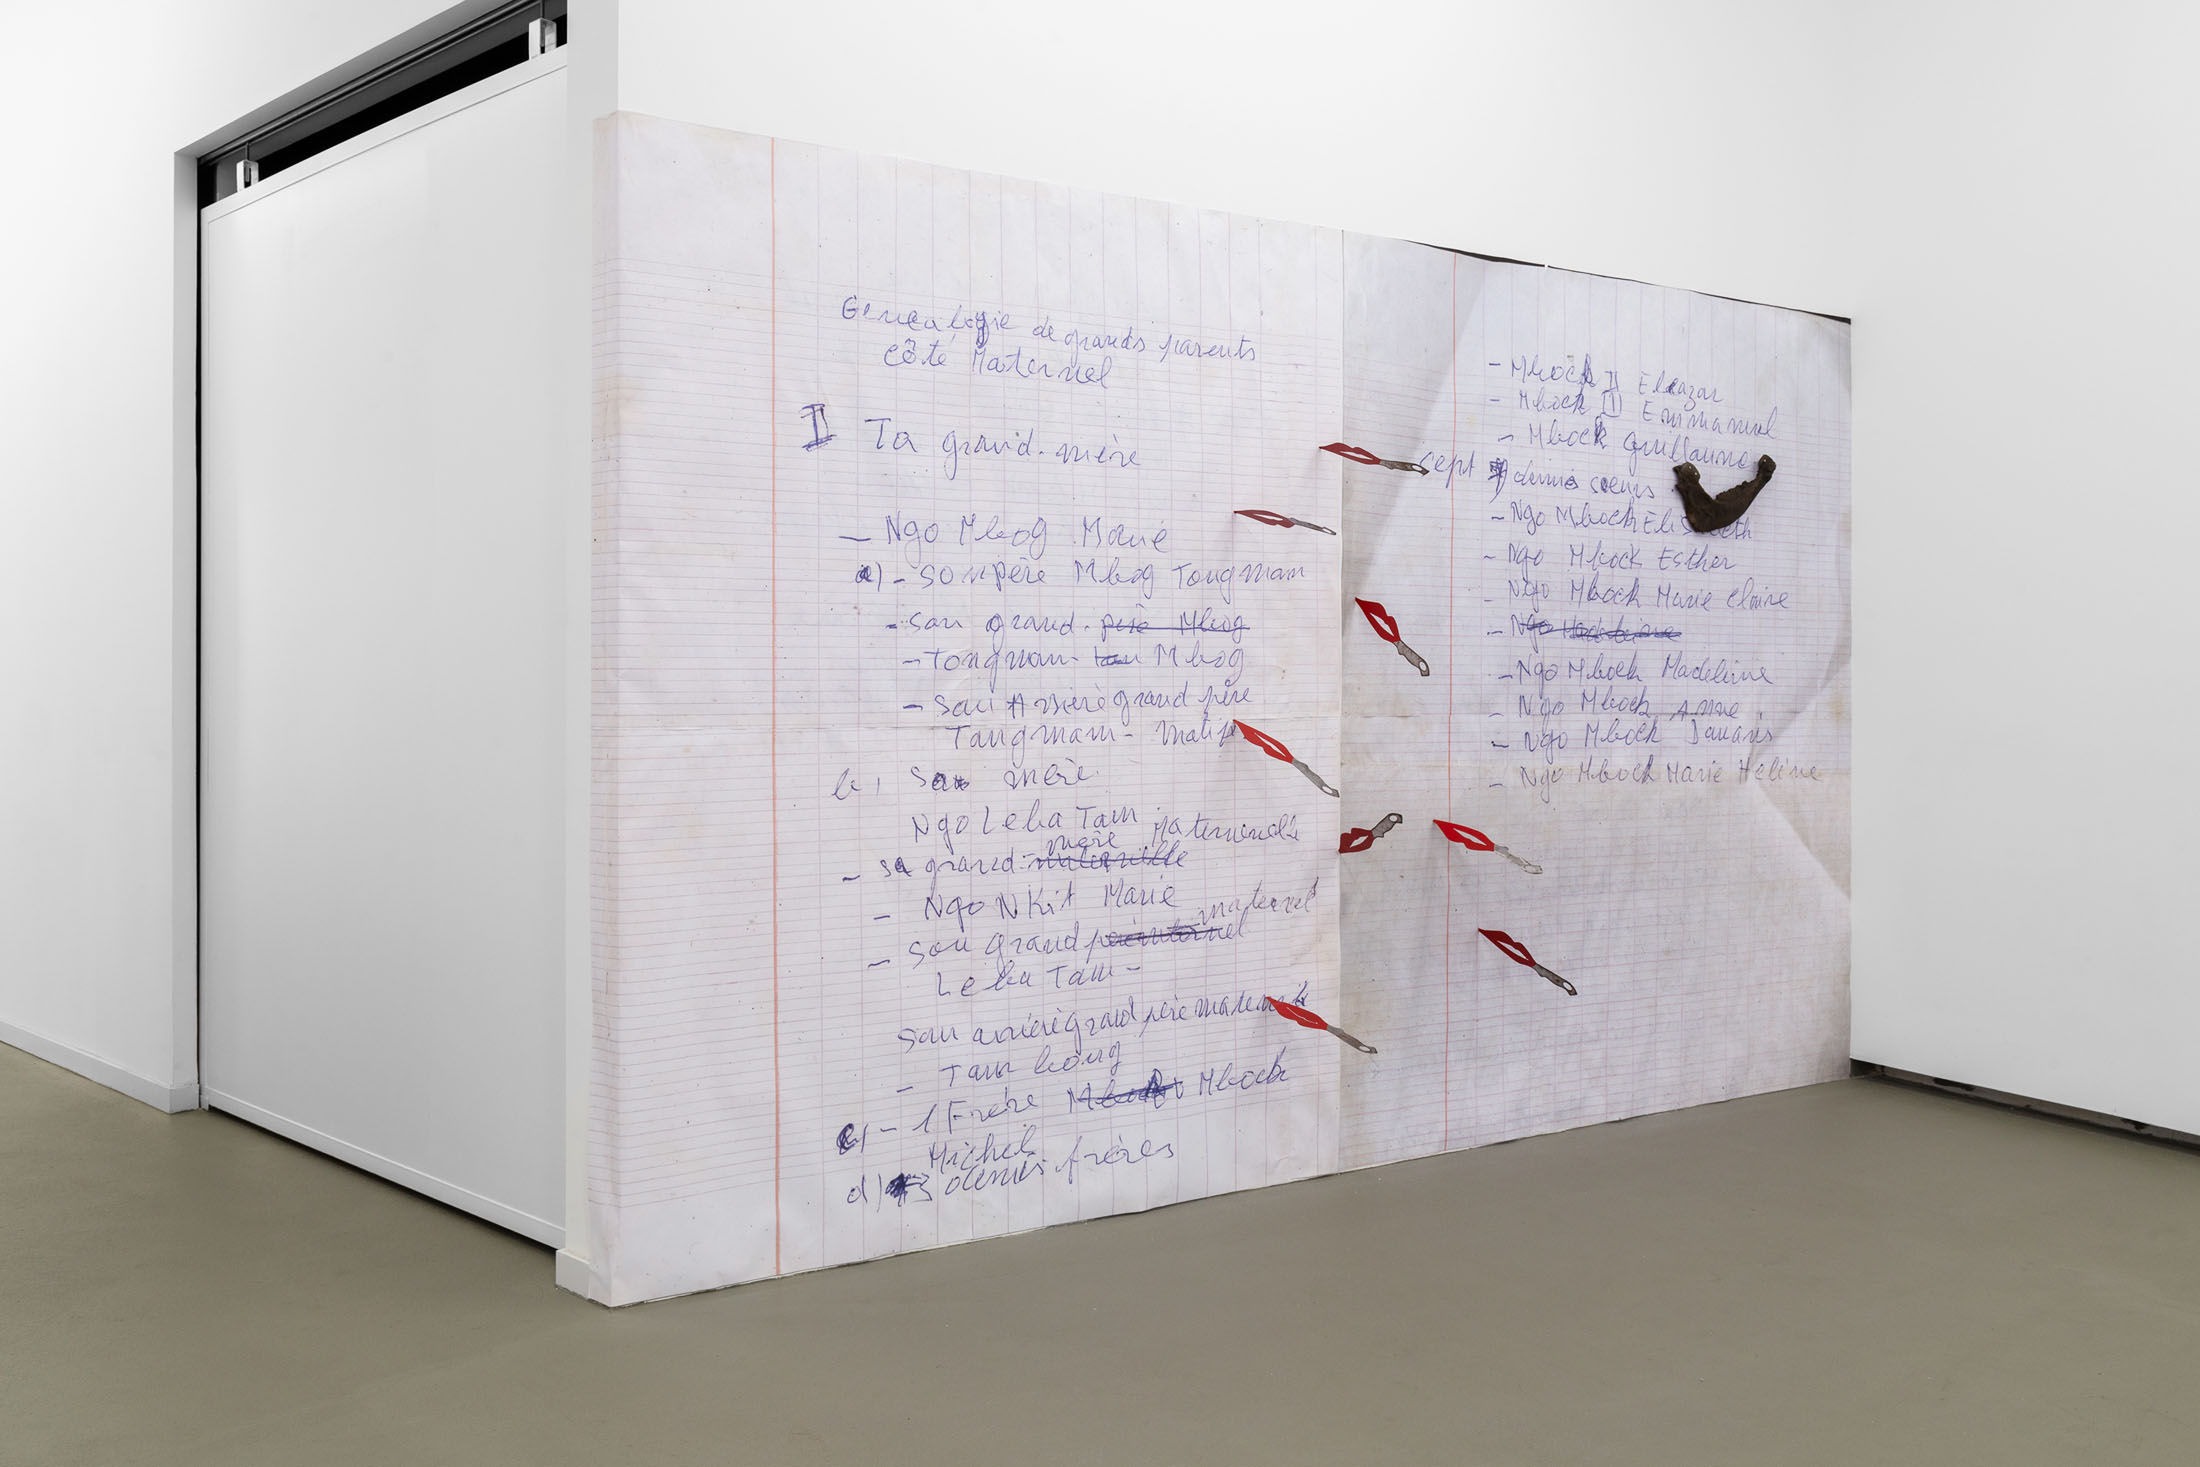 Genealogie de grands parents
côté Maternel
II Ta grand-mère
- Ngo Mbog Marie
a) - son père Mbog Tongmam
- son grand-père Mbog
- Tongmam - Mbog
- son Arrière grand père
Tongmam - Matip
b) Sa mère
Ngo Leba Tam
- sa grand-mère Maternelle
- Ngo NKit Marie
- son grand maternel
Leba Tam -
son arrière grand père maternel
- Tam bong
c) - 1 Frère Mbock
Michel
d) 3 demis-frères
- Mbock II Eleazar
- Mbock III Emmanuel
- Mbock Guillaume
sept demis soeurs
- Ngo Mbock Elisabeth
- Ngo Mbock Esther
- Ngo Mbock Marie Claire
- Ngo Madeleine
- Ngo Mbock Madeleine
- Ngo Mbock Anne
- Ngo Mbock Damaris
- Ngo Mbock Marie Helène